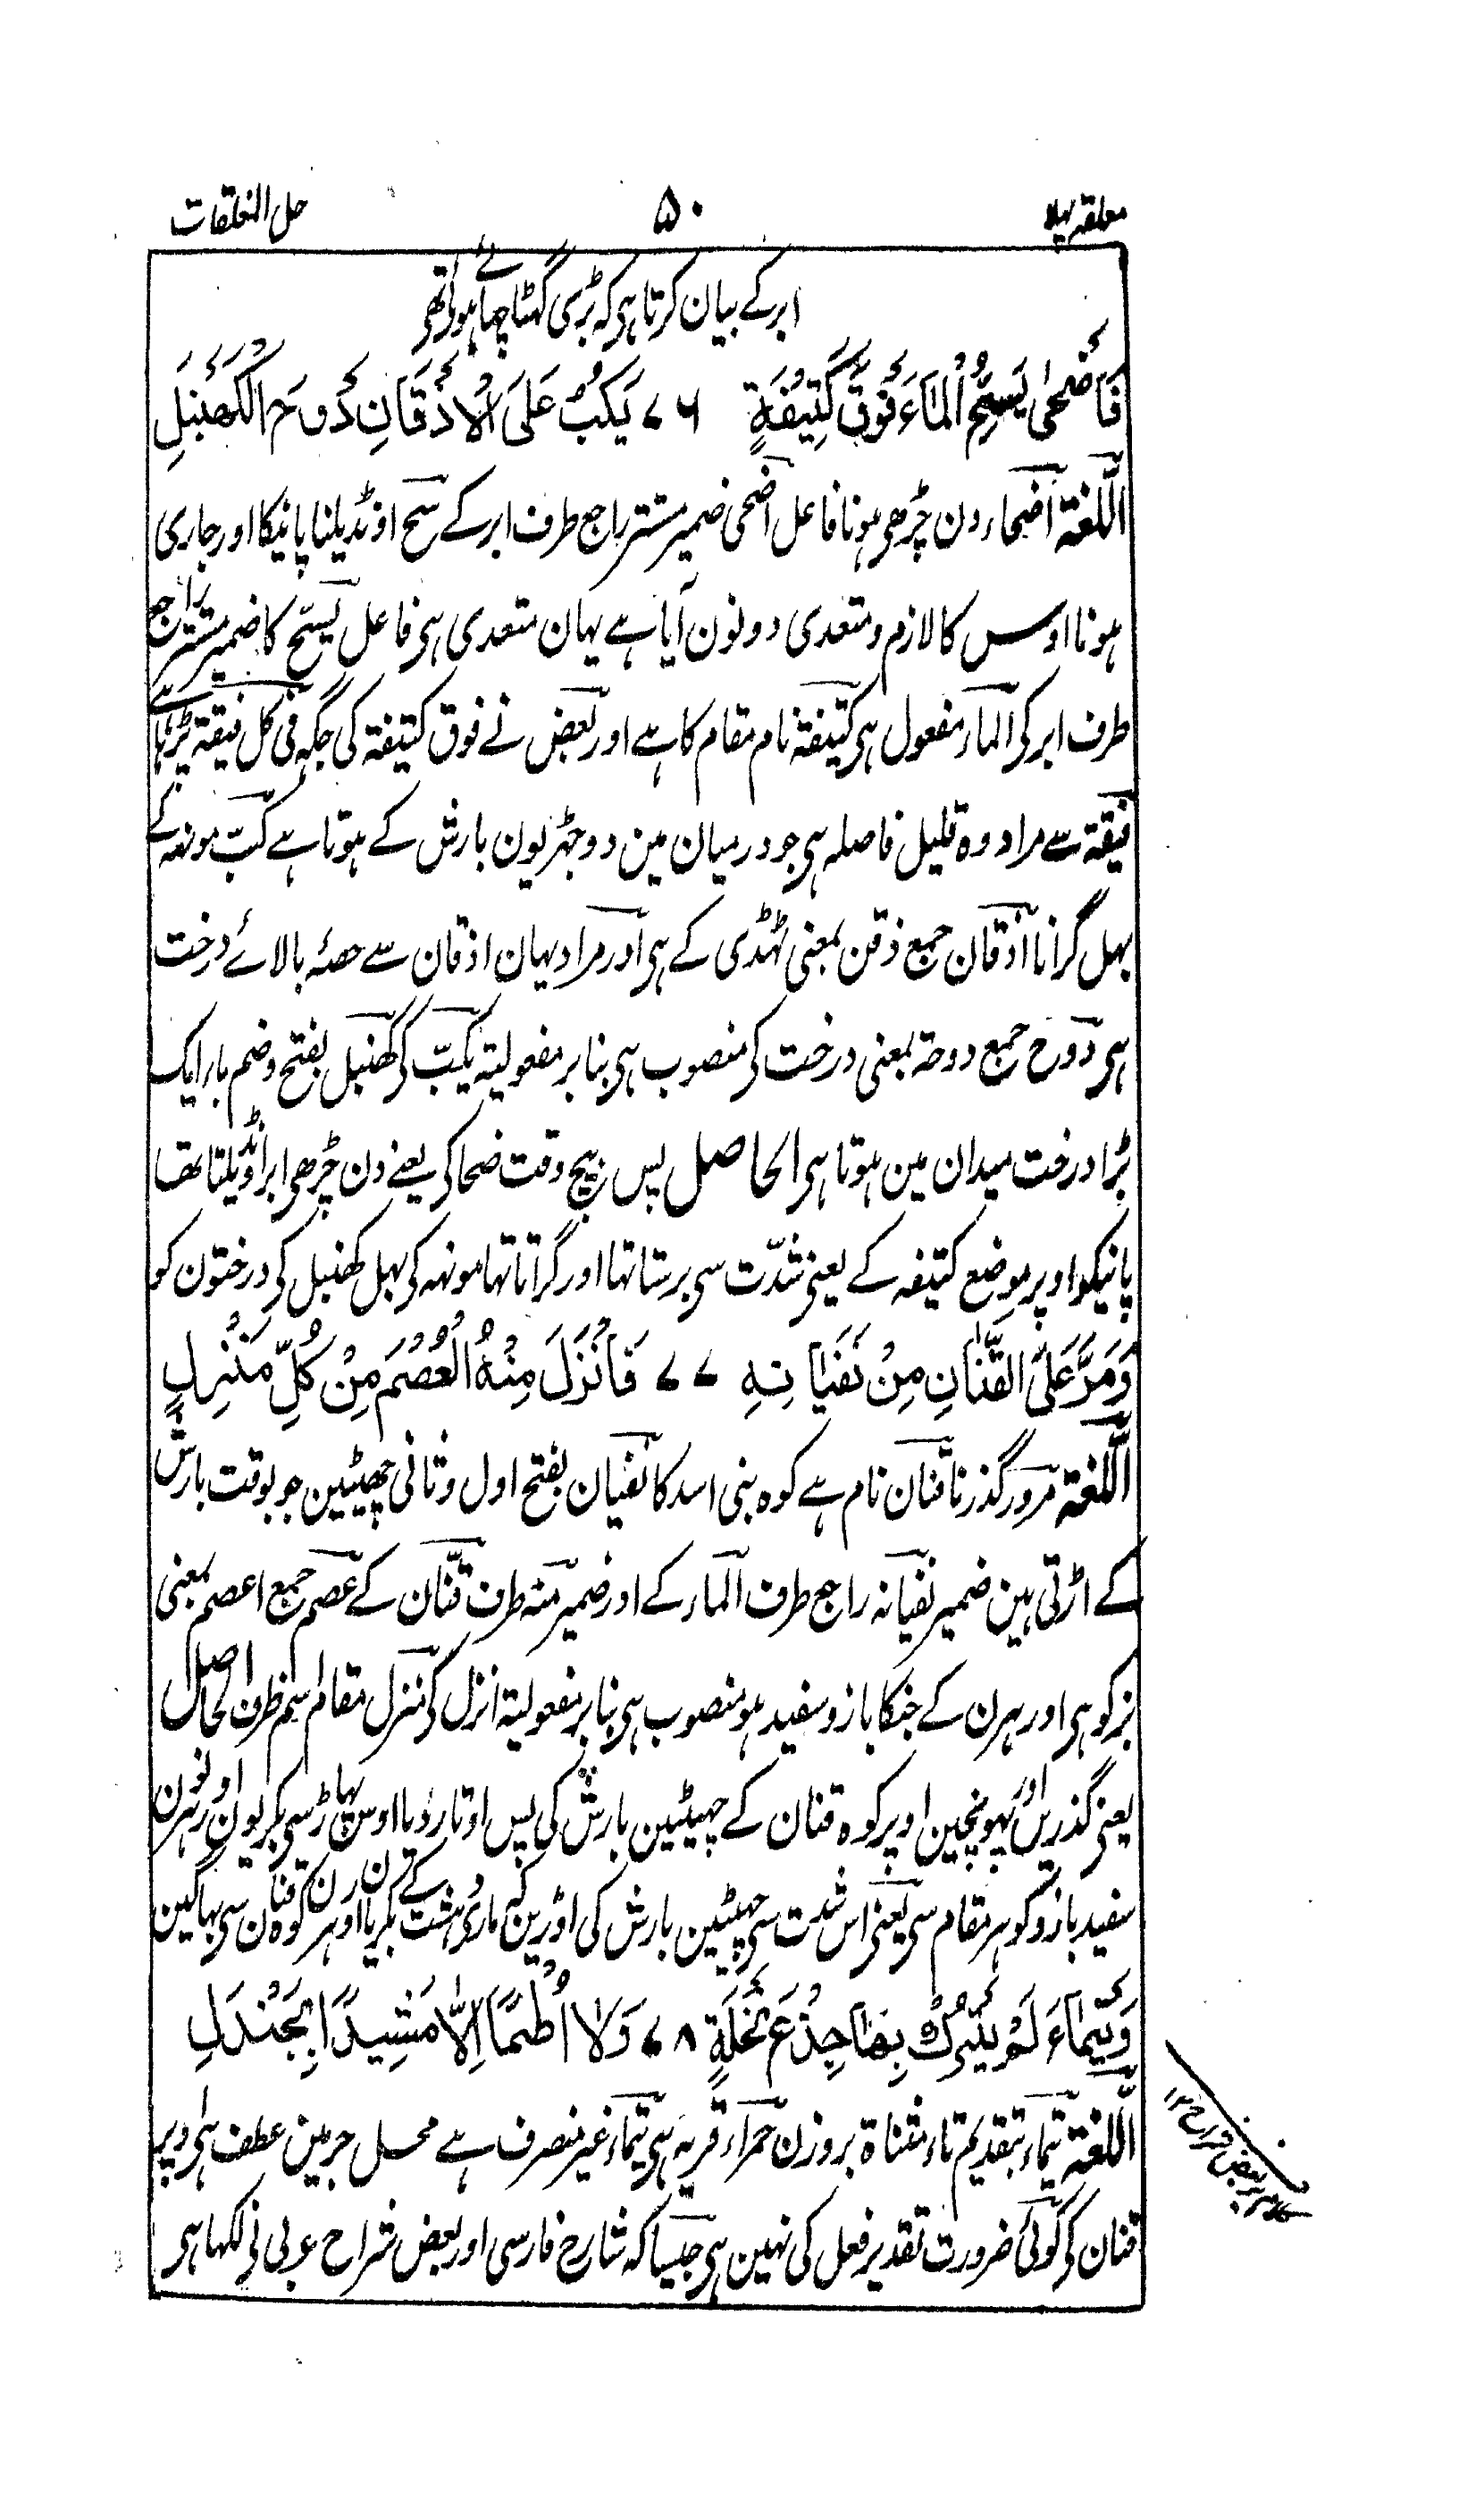 معلقہ پہلا ۵۰ حل المعلقات
ابر کے بیان کرتا ہی کہ بڑی گہٹا چہائے ہوئی تھی
فَأَضْحٰى يَسُحُّ الْمَاءَ فَوْقَ كُتَيْفَةٍ ۷۶ يَكُبُّ عَلَى الْاَذْقَانِ دَوْحَ الْكَهَنْبَلِ
اللغة اضحاء دن چڑھی ہونا فاعل اضحی ضمیر مستتر راجع طرف ابر کے سح اونڈیلنا پانیکا اور جاری
ہونا اوس کا لازم و متعدی دونون آیا ہے یہان متعدی ہی فاعل یسح کا ضمیر مستتر راجع
طرف ابر کی الماء مفعول ہی کتیفۃ نام مقام کا ہے اور بعض نے فوق کتیفۃ کی جگہ فی کل فیقۃ پڑہا ہے
فیقۃ سے مراد وہ قلیل فاصلہ ہی جو درمیان مین دو جہڑیون بارش کے ہوتا ہے کبّ مونہہ کے
بہل گرانا اذقان جمع ذقن بمعنی ٹہڈی کے ہی اور مراد یہان اذقان سے حصۂ بالائے درخت
ہی دوح جمع دوحۃ بمعنی درخت کی منصوب ہی بنا بر مفعولیۃ یکبّ کی کھنبل بفتح و ضم باء ایک
بڑا درخت میدان مین ہوتا ہی الحاصل پس بیچ وقت ضحا کی یعنے دن چڑھی ابر اونڈیلتا تھا
پانیکو اوپر موضع کتیفہ کے یعنی شدّت سی برستا تہا اور گراتا تہا مونہہ کی بہل کھنبل کی درختون کو
وَمَرَّ عَلَى الْقَنَّانِ مِنْ نَفَيَانِهِ ۷۷ فَاَنْزَلَ مِنْهُ الْعُصْمَ مِنْ كُلِّ مَنْزِلٍ
اللغة مرور گذرنا قنان نام ہے کوہ بنی اسد کا نفیان بفتح اول و ثانی چھینٹین جو بوقت بارش
کے اڑتی ہین ضمیر نفیانہ راجع طرف الماء کے اور ضمیر منہ طرف قنّان کے عصم جمع اعصم بمعنی
بز کوہی اور ہرن کے جنکا بازو سفید ہو منصوب ہی بنا بر مفعولیۃ انزل کی منزل مقام اسم ظرف الحاصل
یعنی گذرین اور پہونچین اوپر کوہ قنان کے چہینٹین بارش کی پس اوتار دیا اوس پہاڑ سی بکریون اور ہرنون
سفید بازو کو ہر مقام سی یعنی اس شدت سی چہینٹین بارش کی اوڑین کہ ماری دہشت کے بکریان اور ہرن کوہ قنان سی بہاگین
وَتَيْمَاءَ لَمْ يَتْرُكْ بِهَا جِذْعَ نَخْلَةٍ ۷۸ وَلَا اُطُمًا اِلَّا مَشِيْدًا بِجَنْدَلِ
اللغة تیماء بتقدیم تاء مثناۃ بروزن حمراء قریہ ہی تیماء غیر منصرف ہے محل جر مین عطف ہی اوپر
قنان کی کوئی ضرورت تقدیر فعل کی نہین ہی جیسا کہ شارح فارسی اور بعض شراح عربی نی لکہا ہی